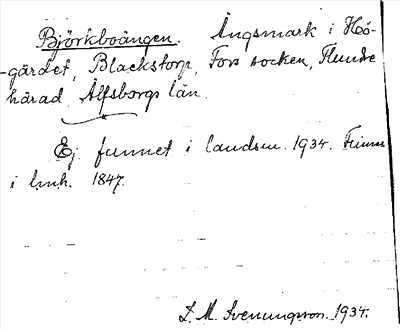 Björkboängen. Ängsmark i Hö-
-gärdet, Blackstorp, Fors socken, Flundre
härad Älfsborgs län.
Ej funnet i landsm. 1934. Finnes
i lmh. 1847.
L. M. Svenungsson. 1934.